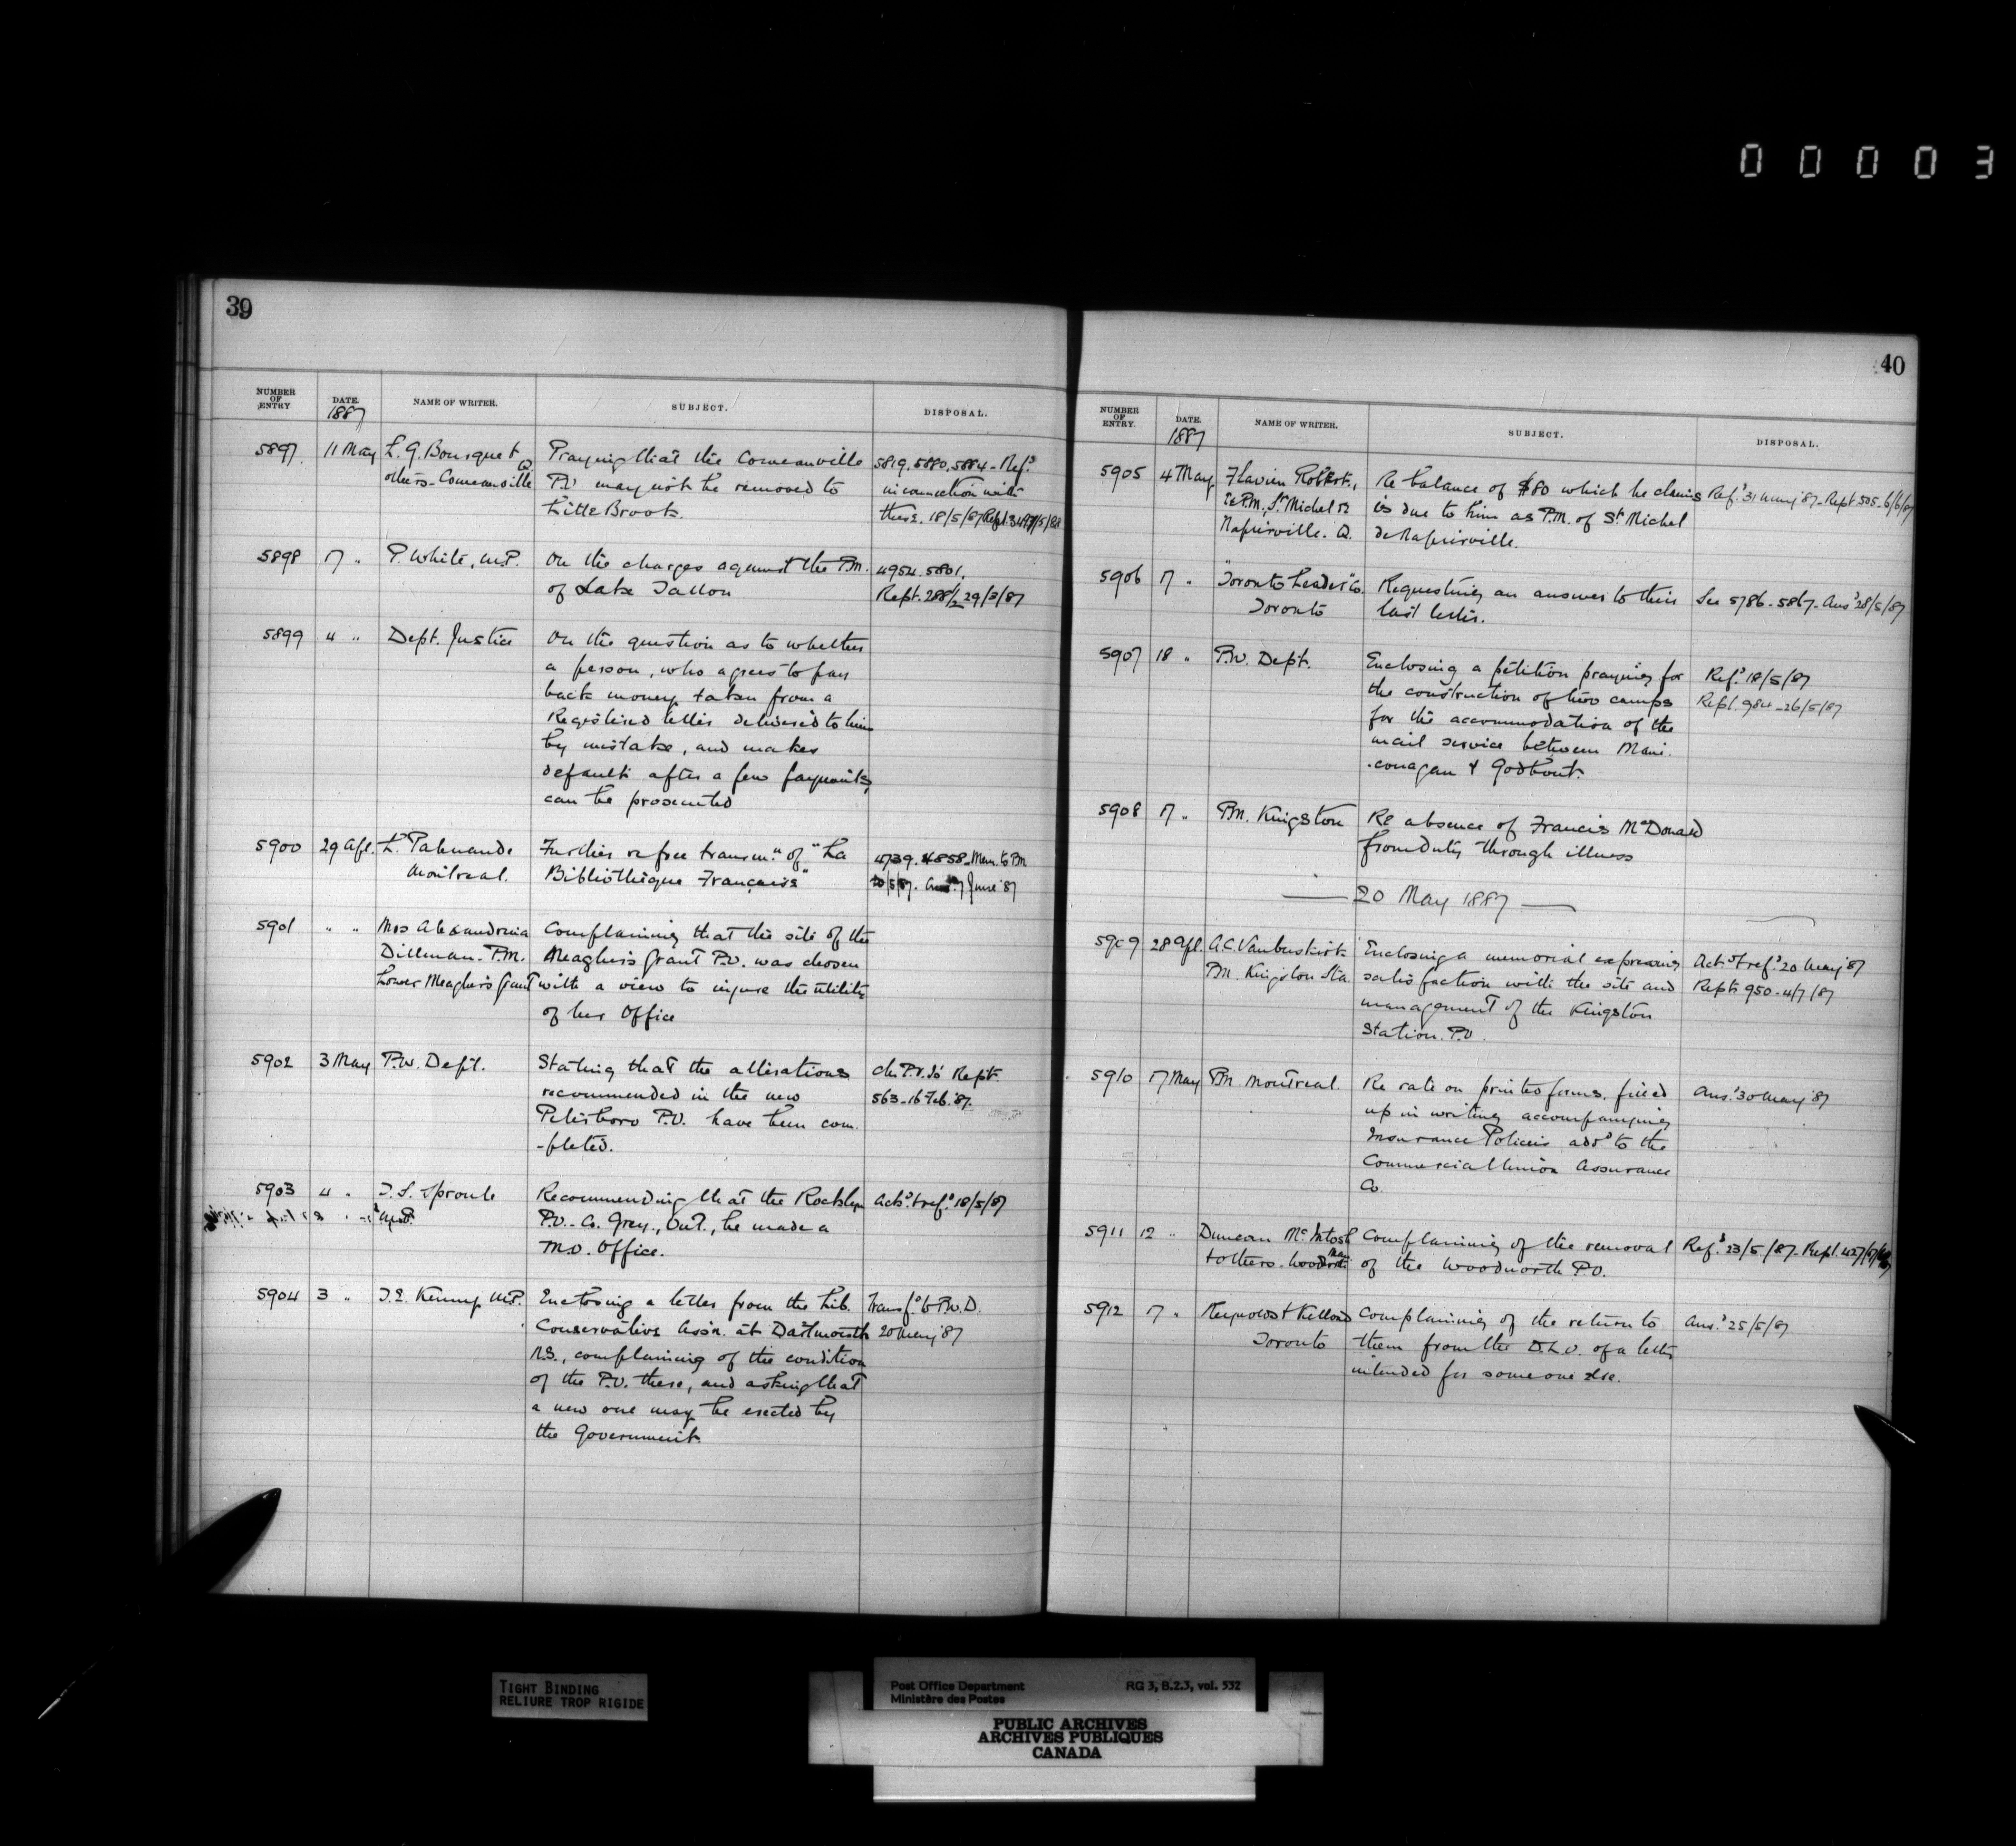 00003
39
NUMBER OF ENTRY.
DATE. 1887
NAME OF WRITER.
SUBJECT.
DISPOSAL.
5897 11 May L. G. Bousquet & Praying that the Comeauville 5819. 5880. 5884 - Refd
others - Comeauville P.O. may not be removed to in connection with
Little Brook. these. 18/5/87
5898 17 " P. White, M.P. On the charges against the P.M. 4954. 5801.
of Lake Tallon Rept. 288 1/2 29/3/87
5899 4 " Dept. Justice On the question as to whether
a person, who agrees to pay
back money taken from a
Registered letter delivered to him
by mistake, and makes
default after a few payments,
can be prosecuted
5900 29 Apl. L. Further re free transmn. of "La 4739. 4858 - Mem. to PM
Montreal. Bibliothèque Française" 20/5/87. Ansd 7 June '87
5901 " " Mrs Alexandrina Complaining that the site of the
Dillman. P.M. Meaghers Grant P.O. was chosen
Lower Meaghers Grant with a view to injure the utility
of her Office
5902 3 May P.W. Dept. Stating that the alterations
recommended in the new 563 - 16 Feb. '87.
Peterboro P.O. have been com-
-pleted.
5903 4 " T. S. Sproule Recommending that the Rocklyn Ackd. & refd 18/5/87
M.P. P.O. - Co. Grey., Ont., be made a
M.O. Office.
5904 3 " T. E. Kenny M.P. Enclosing a letter from the Lib. Transfd to P.W.D.
Conservative Assn. at Dartmouth 20 May '87
N.S., complaining of the condition
of the P.O. there, and asking that
a new one may be erected by
the Government.
40
NUMBER OF ENTRY.
DATE. 1887
NAME OF WRITER.
SUBJECT.
DISPOSAL.
5905 4 May Flavien Robert., Re balance of $80 which he claims Refd 31 May '87 - Rept 505 - 6/6/87
Ex P.M., St Michel de is due to him as P.M. of St Michel
Napierville. Q. de Napierville.
5906 17 " "Toronto Leader" Co. Requesting an answer to their See 5786 - 5867 - Ansd 28/5/87
Toronto last letter.
5907 18 " P.W. Dept. Enclosing a petition praying for Refd 18/5/87
the construction of two camps Rept. 984 - 26/5/87
for the accommodation of the
mail service between Mani-
-couagan & Godbout.
5908 17 " P.M. Kingston Re absence of Francis McDonald
from duty through illness
— 20 May 1887 —
5909 28 Apl. A.C. Vanbuskirk Enclosing a memorial expressing Ackd & refd 20 May '87
P.M. Kingston Sta. satisfaction with the site and Rept. 950 - 4/7/87
management of the Kingston
Station. P.O.
5910 17 May P.M. Montreal. Re rate on printed forms, filled Ansd 30 May '87
up in writing accompanying
Insurance Policies addd to the
Commercial Union Assurance
Co.
5911 12 " Duncan McIntosh Complaining of the removal Refd 23/5/87 - Rept. 427
& others - of the Woodworth P.O.
5912 17 " Reynolds & Kellond Complaining of the return to Ansd 25/5/87
Toronto them from the D.L.O. of a letter
intended for someone else.
TIGHT BINDING
RELIURE TROP RIGIDE
Post Office Department RG 3, B.2.3, vol. 532
Ministère des Postes
PUBLIC ARCHIVES
ARCHIVES PUBLIQUES
CANADA